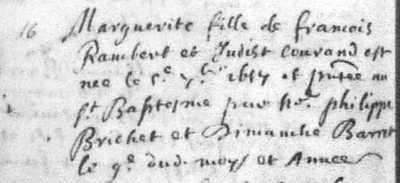 16 Marguerite fille de francois
Rambert et Judist Couvand est
nee le 5e 7bre 1667 et p̃ntée au
st Baptesme par hr. philippe
Brichet et Dimanche Barret
le 9e dud. moys et Annee